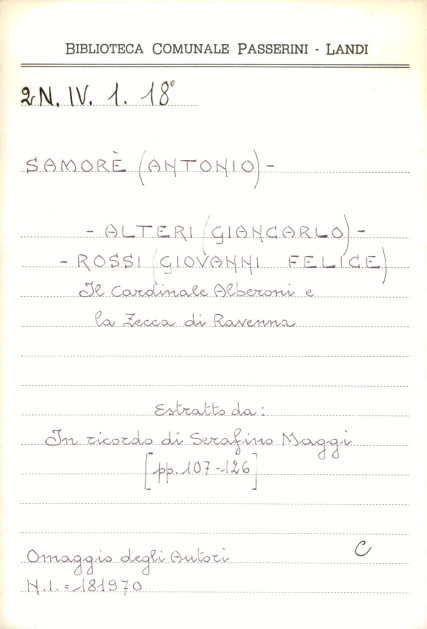 BIBLIOTECA COMUNALE PASSERINI - LANDI
2N. IV. 1. 18°
SAMORÈ (ANTONIO) -
- ALTERI (GIANCARLO) -
- ROSSI (GIOVANNI FELICE)
Il Cardinale Alberoni e
la Zecca di Ravenna
Estratto da:
In ricordo di Serafino Maggi
[pp. 107-126]
Omaggio degli Autori C
N.I. = 181970